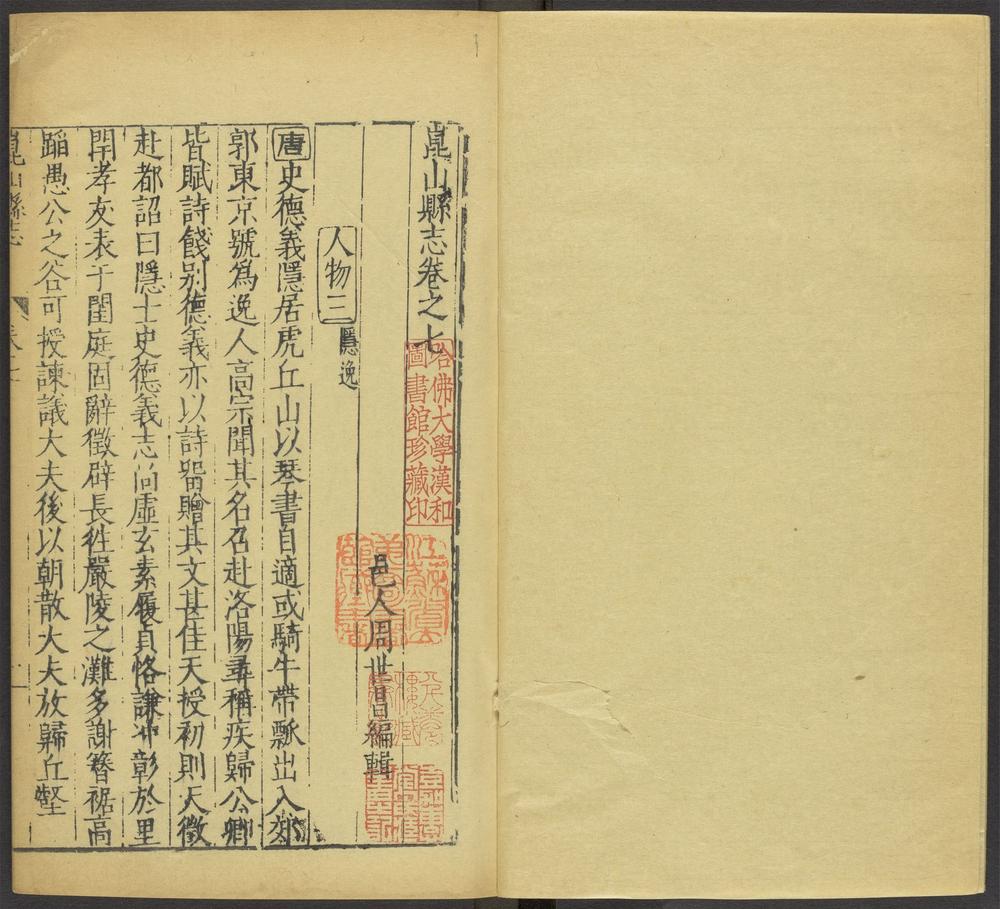 崑山縣志卷之七
哈佛大學漢和
圖書館珍藏印
邑人周世昌編輯
人物三 隱逸
唐史德義隱居虎丘山以琴書自適或騎牛帶瓢出入郊
郭東京號爲逸人高宗聞其名召赴洛陽尋稱疾歸公卿
皆賦詩餞别德義亦以詩畱贈其文甚佳天授初則天徵
赴都詔曰隱士史德義志尚虛玄素履貞恪謙冲彰於里
閈孝友表于閨庭固辭徵辟長往嚴陵之灘多謝簪裾高
蹈愚公之谷可授諫議大夫後以朝散大夫放歸丘壑
崑山縣志